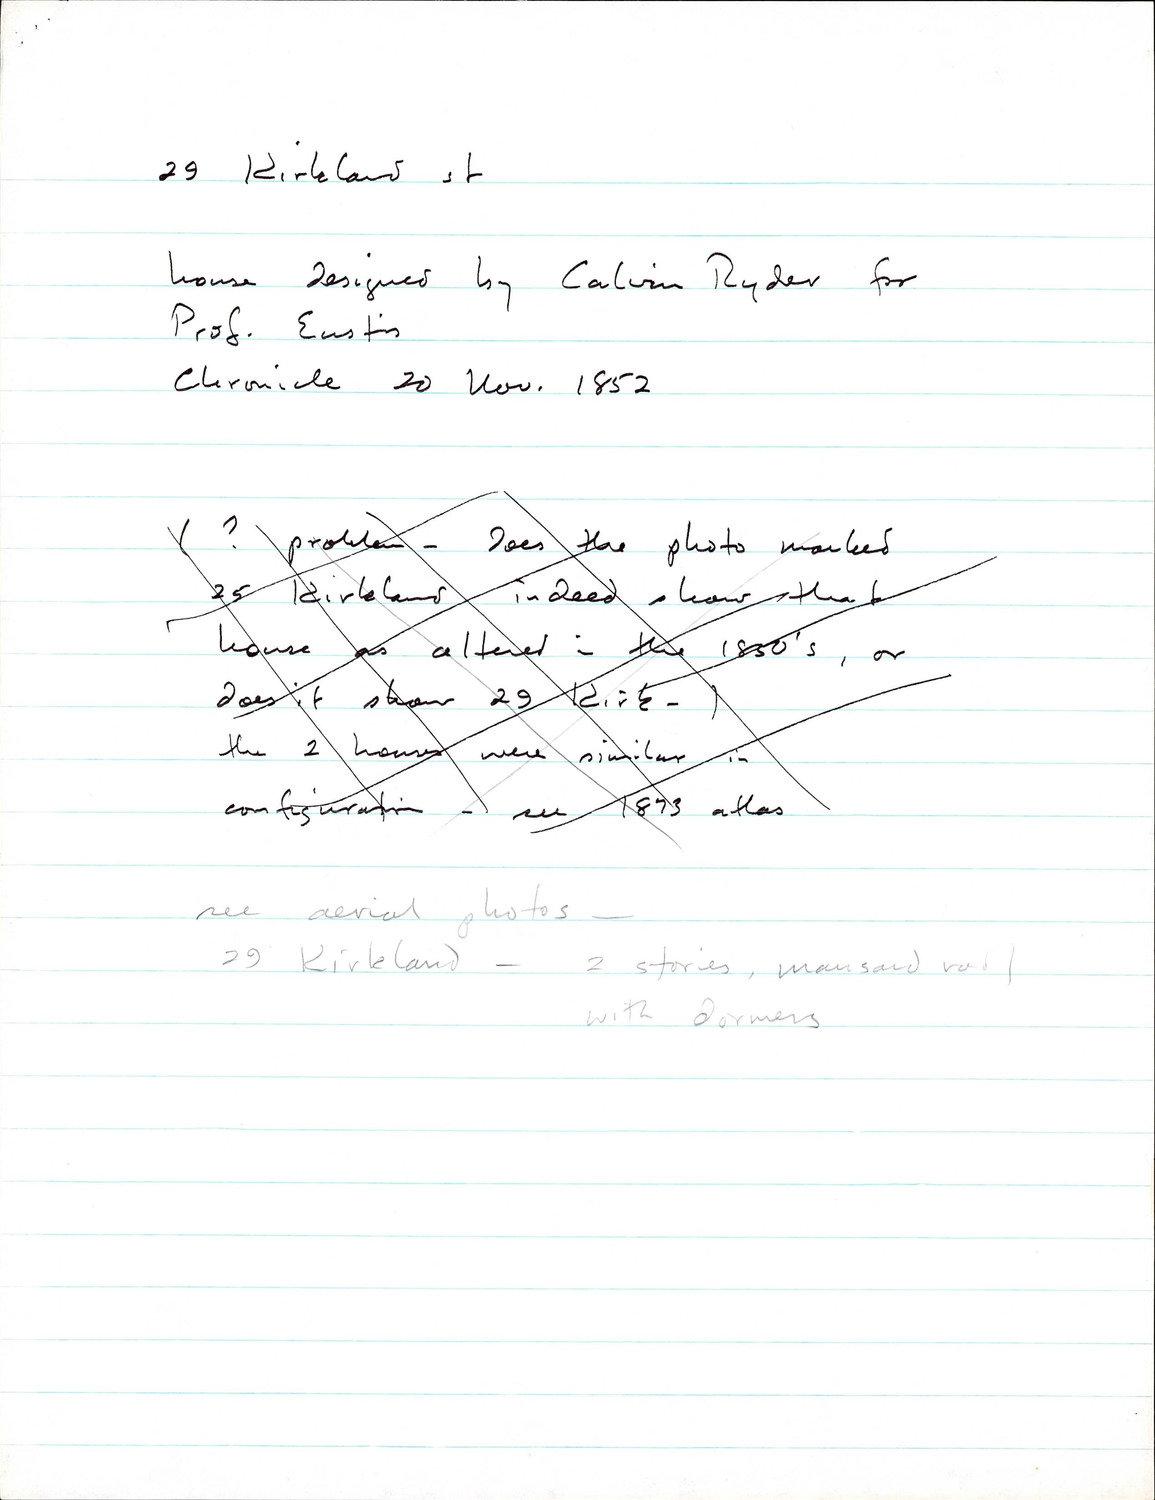 29 Kirkland st
house designed by Calvin Ryder for
Prof. Eustis
Chronicle 20 Nov. 1852
( ? problem - Does the photo marked
25 Kirkland indeed show that
house as altered in the 1850's, or
does it show 29 Kirk - )
the 2 houses were similar in
configuration - see 1873 atlas
see aerial photos -
29 Kirkland - 2 stories, mansard roof
with dormers